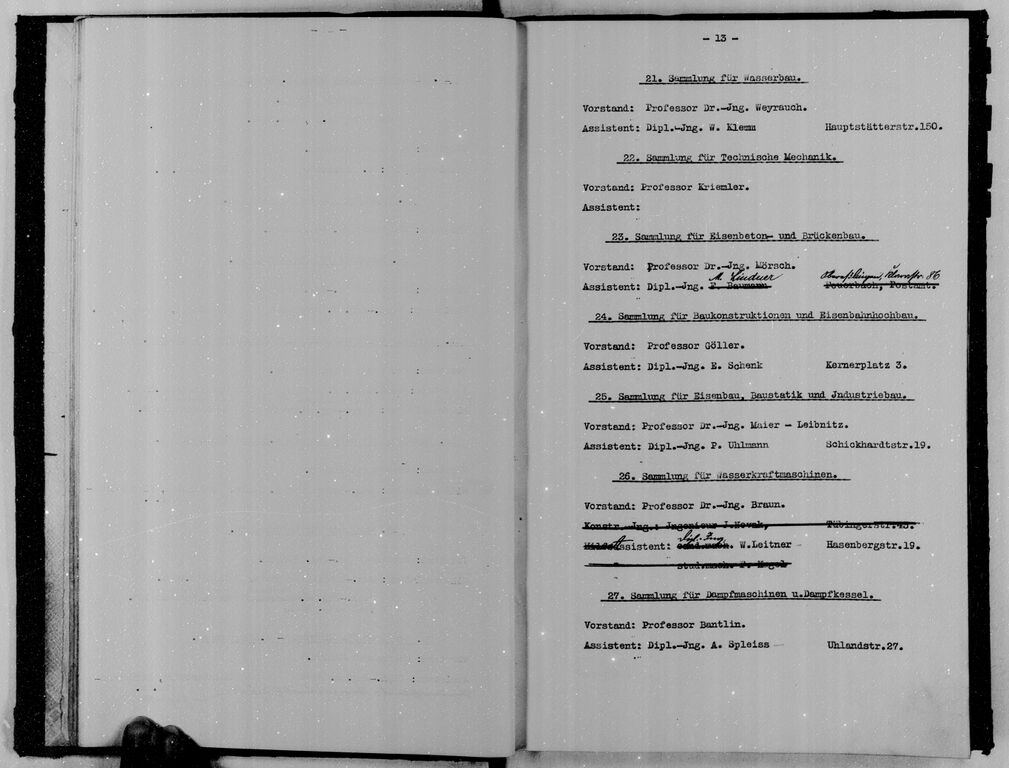 - 13 -
21. Sammlung für Wasserbau.
Vorstand: Professor Dr.-Jng. Weyrauch.
Assistent: Dipl.-Jng. W. Klemm Hauptstätterstr.150.
22. Sammlung für Technische Mechanik.
Vorstand: Professor Kriemler.
Assistent:
23. Sammlung für Eisenbeton- und Brückenbau.
Vorstand: Professor Dr.-Jng. Mörsch.
A. Lindner 86
Assistent: Dipl.-Jng. F. Baumann Feuerbach, Postamt.
24. Sammlung für Baukonstruktionen und Eisenbahnhochbau.
Vorstand: Professor Göller.
Assistent: Dipl.-Jng. E. Schenk Kernerplatz 3.
25. Sammlung für Eisenbau, Baustatik und Jndustriebau.
Vorstand: Professor Dr.-Jng. Maier - Leibnitz.
Assistent: Dipl.-Jng. P. Uhlmann Schickhardtstr.19.
26. Sammlung für Wasserkraftmaschinen.
Vorstand: Professor Dr.-Jng. Braun.
Konstr.-Jng.: Jngenieur J.Novak, Tübingerstr.43.
Dipl.-Ing.
Hilfsassistent: cand.mach. W.Leitner Hasenbergstr.19.
stud.mach. F. Nagel
27. Sammlung für Dampfmaschinen u.Dampfkessel.
Vorstand: Professor Bantlin.
Assistent: Dipl.-Jng. A. Spleiss Uhlandstr.27.